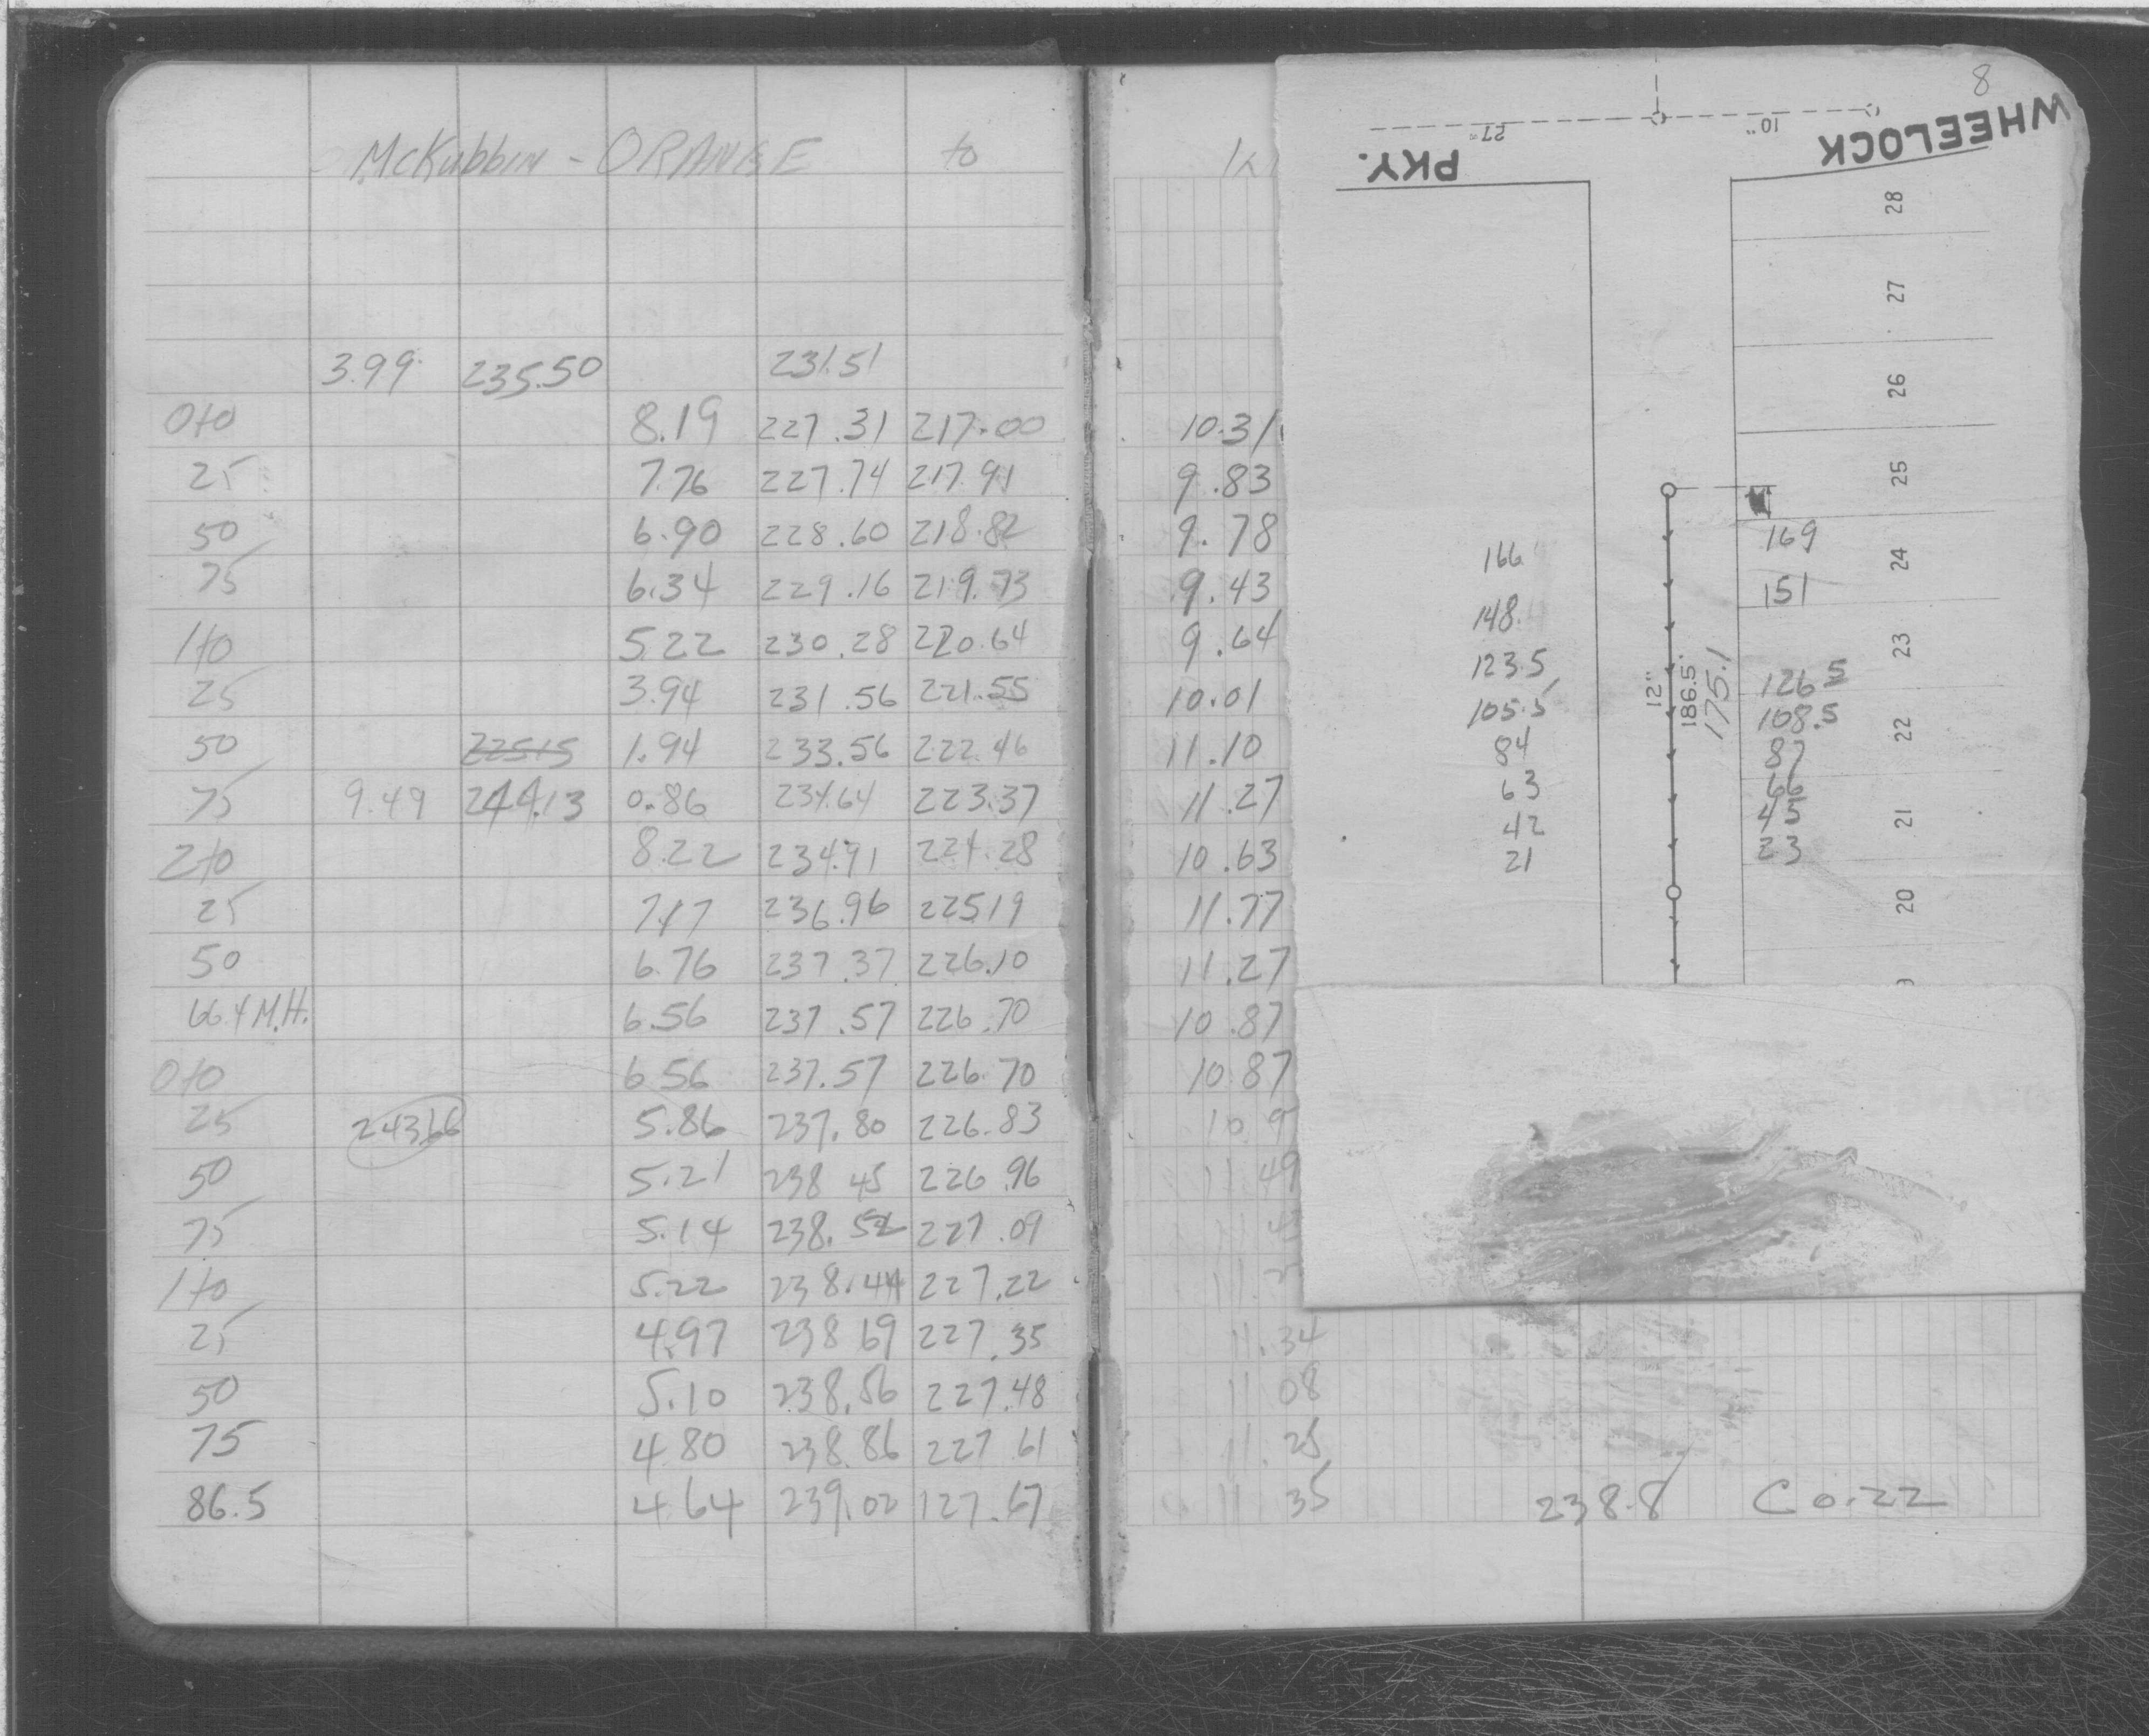 McKubbin - ORANGE to
3.99 235.50 231.51
0+0 8.19 227.31 217.00 10.31
25 7.76 227.74 217.91 9.83
50 6.90 228.60 218.82 9.78
75 6.34 229.16 219.73 9.43
1+0 5.22 230.28 220.64 9.64
25 3.94 231.56 221.55 10.01
50 225.15 1.94 233.56 222.46 11.10
75 9.49 244.13 0.86 234.64 223.37 11.27
2+0 8.22 234.91 224.28 10.63
25 7.17 236.96 225.19 11.77
50 6.76 237.37 226.10 11.27
66.4 M.H. 6.56 237.57 226.70 10.87
0+0 6.56 237.57 226.70 10.87
25 243.66 5.86 237.80 226.83 10.9
50 5.21 238 45 226.96 11.49
75 5.14 238.52 227.09
1+0 5.22 238.44 227.22
25 4.97 238 69 227.35 11.34
50 5.10 238.56 227.48 11 08
75 4.80 238.86 227 61 11.25
86.5 4.64 239.02 127.67 11 35 238.8 C 0.22
8
27"
10"
WHEELOCK
PKY.
28
27
26
25
24
23
22
21
20
9
166
148
123.5
105.5
84
63
42
21
12"
186.5'
175.1
169
151
126.5
108.5
87
66
45
23